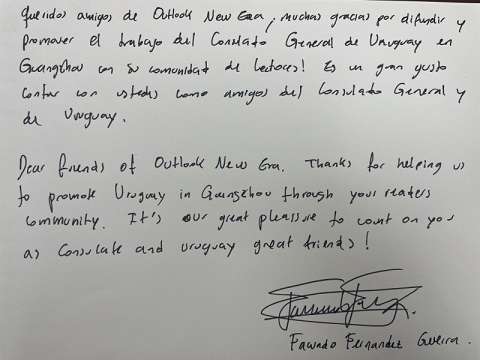 Queridos amigos de Outlook New Era, muchas gracias por difundir y
promover el trabajo del Consulado General de Uruguay en
Guangzhou con su comunidad de lectores! Es un gran gusto
contar con ustedes como amigos del Consulado General y
de Uruguay.
Dear friends of Outlook New Era. Thanks for helping us
to promote Uruguay in Guangzhou through your readers
community. It's our great pleassure to count on you
as Consulate and Uruguay great friends!
Facundo Fernandez Guerra.